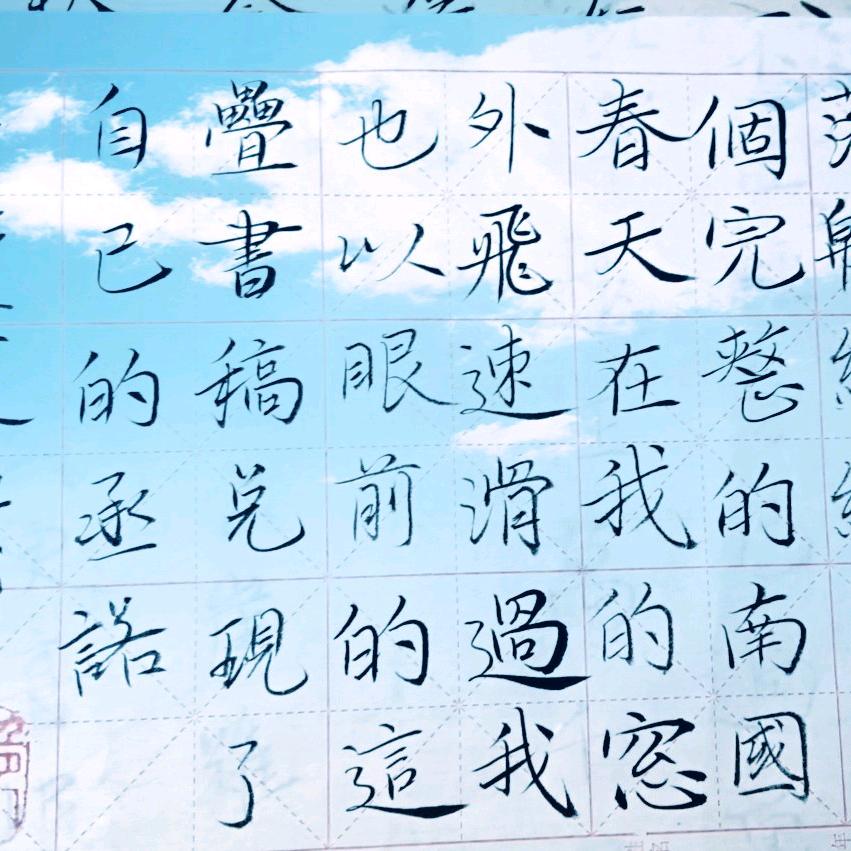 個完整的南國
春天在我的窓
外飛速滑過我
也以眼前的這
疊書稿兌現了
自己的丞諾